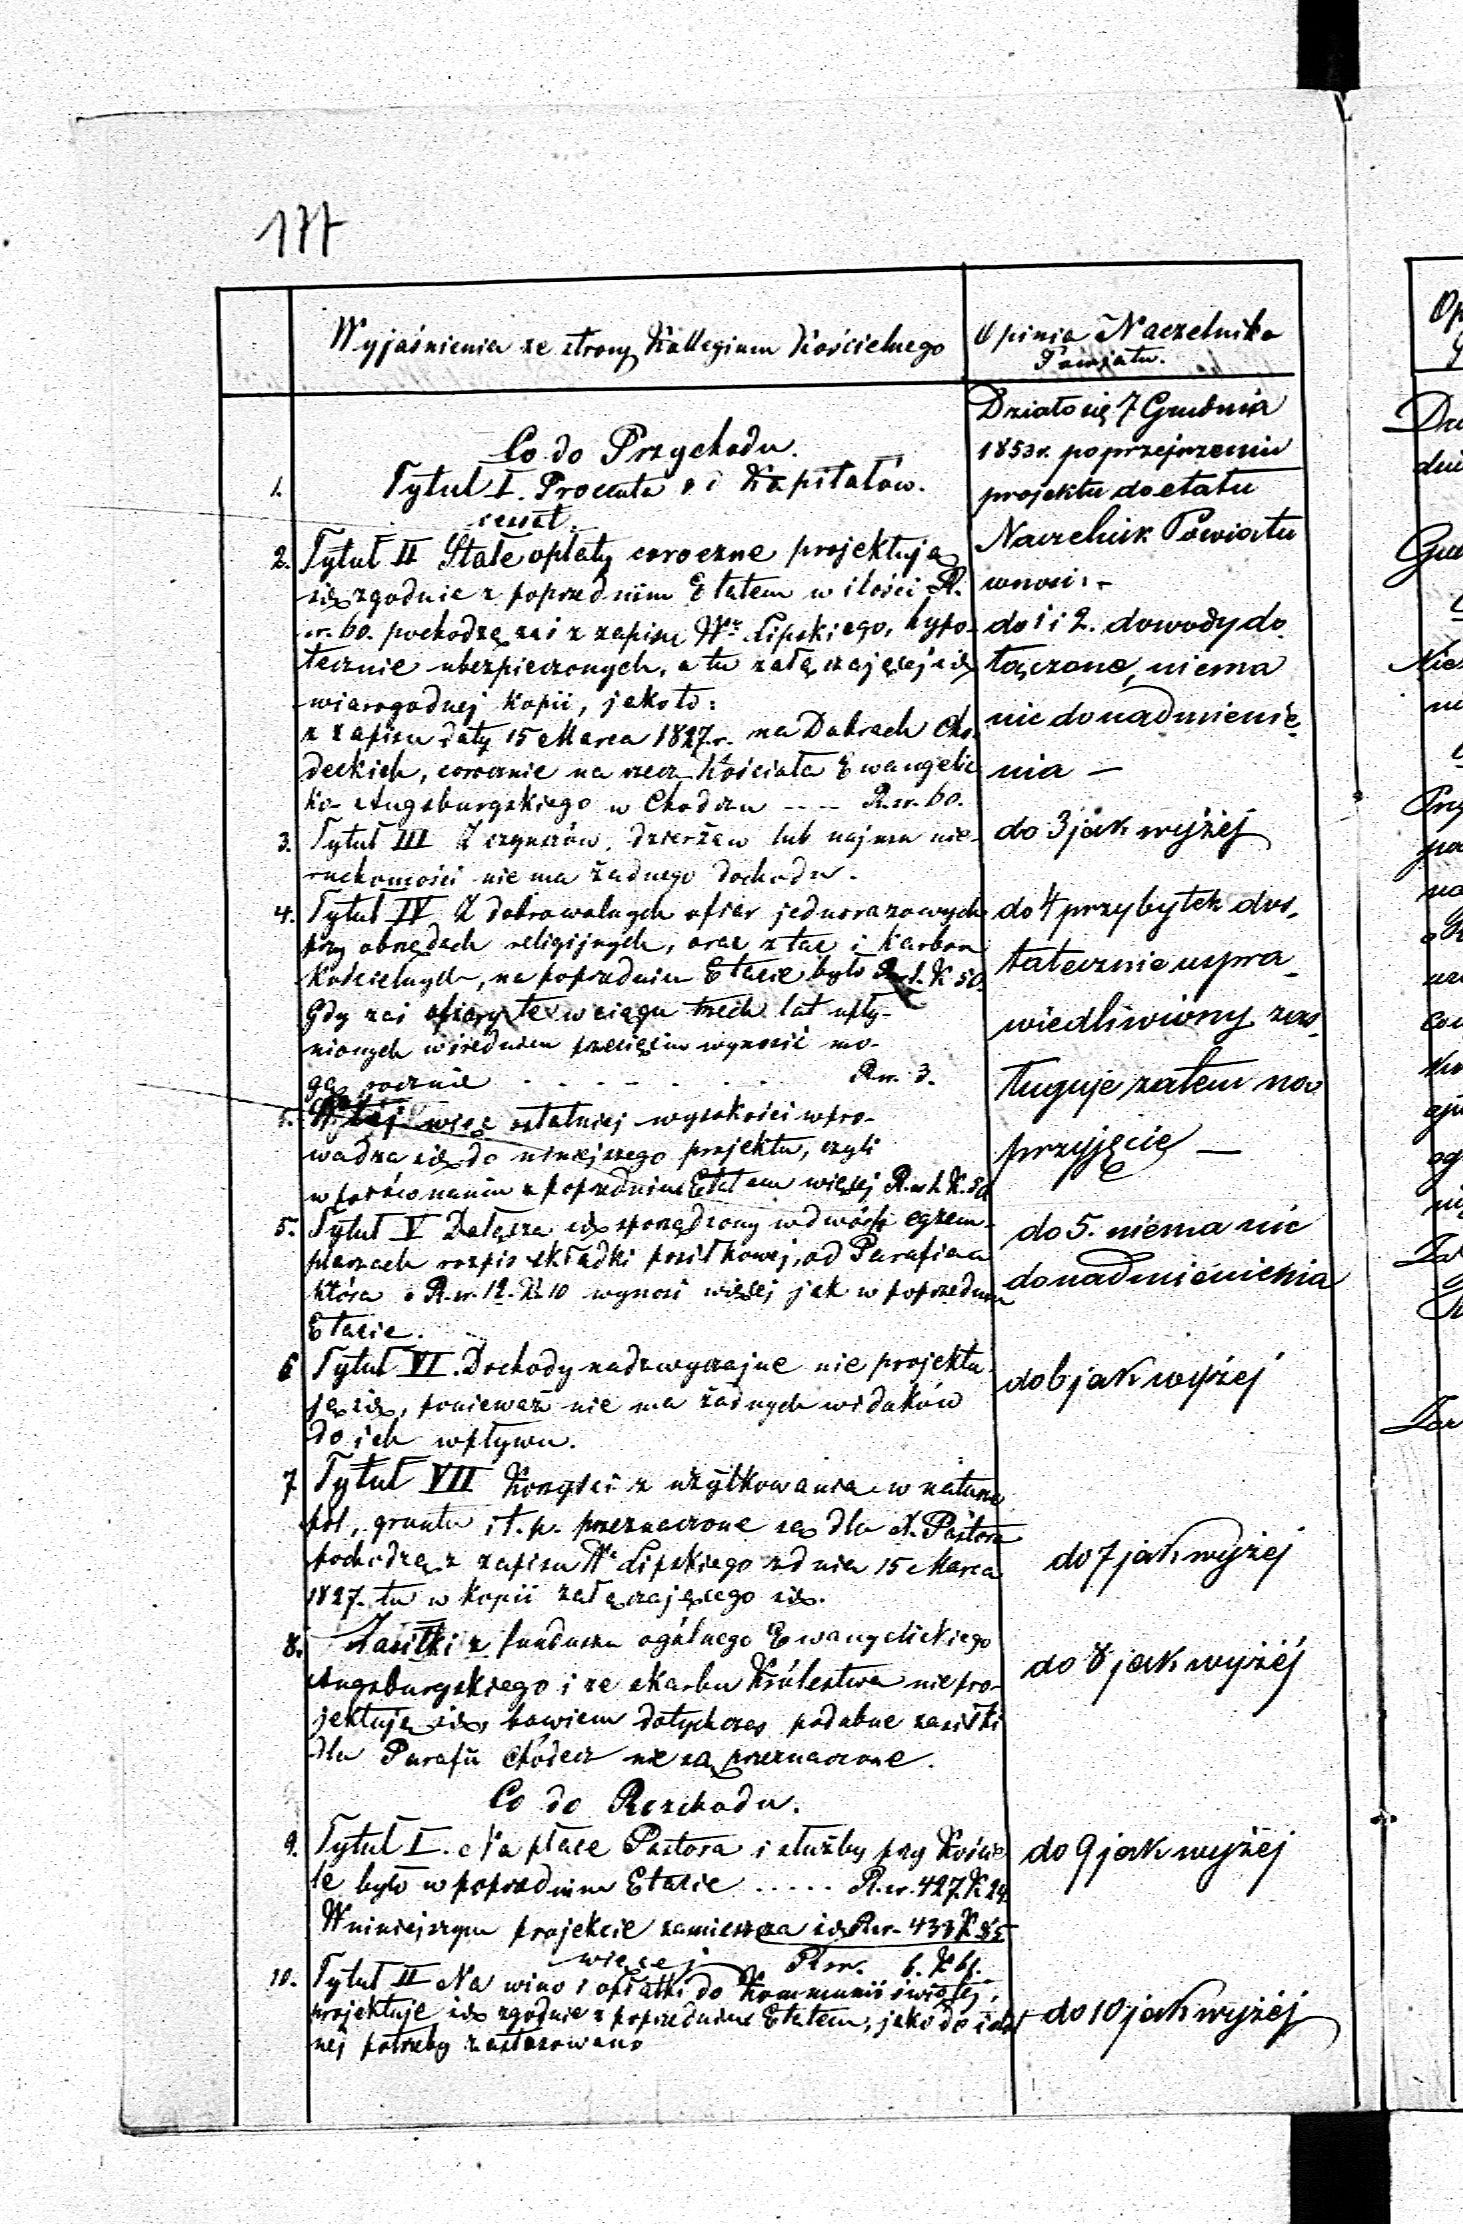 177
Wyjaśnienia ze strony Kollegium Kościelnego
Opinia Naczelnika
Powiatu.
Co do Przychodu.
1. Tytuł I. Procenta od Kapitałów.
2. Tytuł II Stałe opłaty coroczne projektują
się zgodnie z poprzednim Etatem w ilości R.
sr. 60. pochodzą zaś z zapisu Wº Lipskiego, hypo-
tecznie ubezpieczonych, a tu załączającej się
wiarogodnej Kopii, jako to:
z zapisu daty 15 Marca 1827 r. na Dobrach Cho-
deckich, corocznie na rzecz Kościoła Ewangelic
ko-Augsburgskiego w Chodczu ---- R. sr. 60.
3. Tytuł III Z czynszów, dzierżaw lub najmu nie-
ruchomości nie ma żadnego dochodu.
4. Tytuł IV Z dobrowolnych ofiar jednorazowych
przy obrzędach religijnych, oraz z tac i karbon
Kościelnych, na poprzednim Etacie było R. sr. 1. K 50.
Gdy zaś ofiary te w ciągu trzech lat upły-
nionych w średnim przecięciu wynosić mo-
gą rocznie - - - - - - R. sr. 3.
więc ostatniej wysokości wpro-
wadza się do niniejszego projektu, czyli
w porównaniu z poprzednim Etatem więcej R. sr. 1. K. 50
5. Tytuł V Dołącza się sporządzony w dwóch egzem-
plarzach rozpis składki posiłkowej, od Parafian
która o R. sr. 12. K. 10 wynosi więcej jak w poprzednim
Etacie.
6 Tytuł VI. Dochody nadzwyczajne nie projektu
ją się, ponieważ nie ma żadnych widoków
do ich wpływu.
7 Tytuł VII Korzyści z użytkowania w naturze
pól, gruntu i t. p. przeznaczone są dla X. Pastora
pochodzą z zapisu Wº Lipskiego z dnia 15 Marca
1827. tu w kopii załączającego się.
8. Zasiłki z funduszu ogólnego Ewangelickiego
Augsburgskiego i ze skarbu Królestwa nie pro-
jektują się, bowiem dotychczas podobne zasiłki
dla Parafii Chodecz nie są przeznaczone.
Co do Rozchodu.
9. Tytuł I. Na płace Pastora i służby przy Kościo
le było w poprzednim Etacie ----- R. sr. 427. K 24
W niniejszym projekcie zamieszcza się R. sr. 433 K 85
więcej R. sr. 6. K 61.
10. Tytuł II Na wino i opłatki do Kommunii świętej,
projektuje się zgodnie z poprzednim Etatem, jako do
nej potrzeby zastosowano
Działo się 7 Grudnia
1853 r. po przejrzeniu
projektu do etatu
Naczelnik Powiatu
wnosi: -
do 1 i 2. dowody do
łączone, niema
nic do nadmienie
nia -
do 3 jak wyżej
do 4 przybytek dos-
tatecznie uspra-
wiedliwiony zas-
ługuje zatem na
przyjęcie -
do 5. niema nic
do nadmienienia
do 6 jak wyżej
do 7 jak wyżej
do 8 jak wyżej
do 9 jak wyżej
do 10 jak wyżej